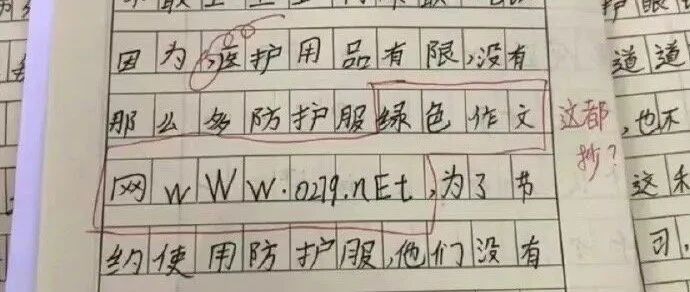 因为医护用品有限,没有
那么多防护服绿色作文
网wWw.0279.nEt,为了节
约使用防护服,他们没有
这都
抄?
护眼
道道
,也不
这和
习,